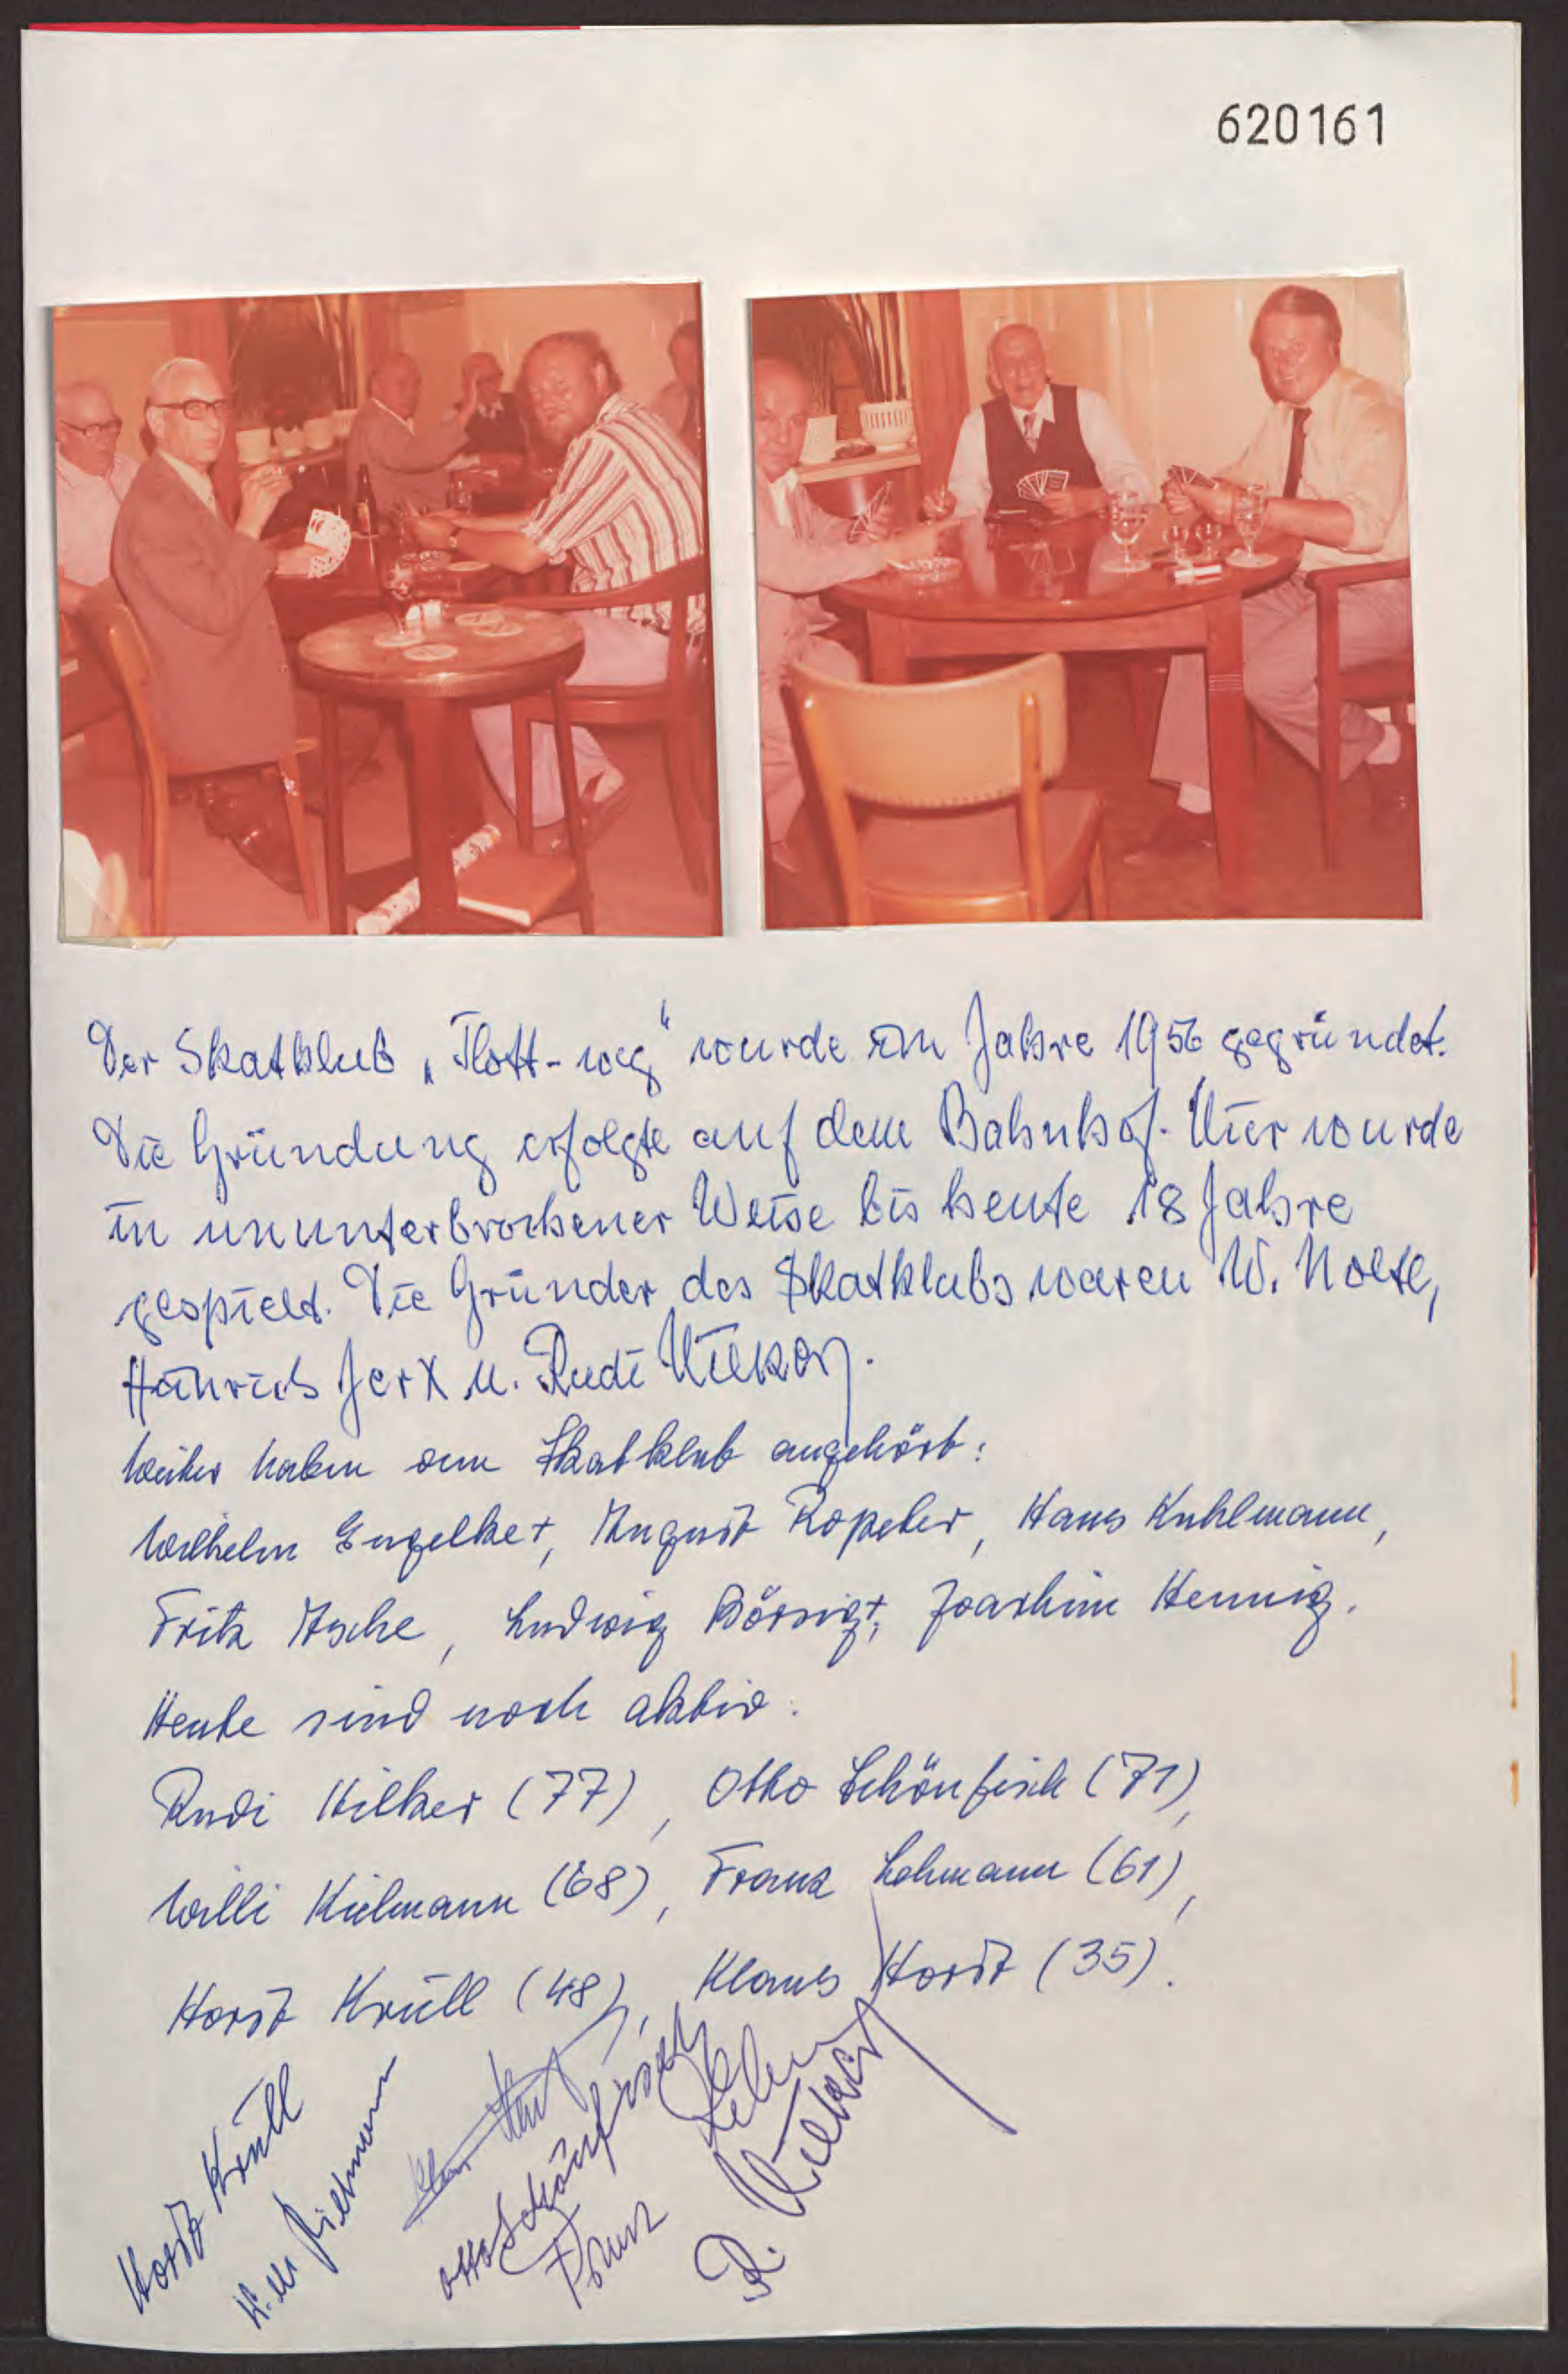 620161
Der Skatklub „Flott-weg“ wurde im Jahre 1956 gegründet.
Die Gründung erfolgte auf dem Bahnhof. Hier wurde
in ununterbrochener Weise bis heute 18 Jahre
gespielt. Die Gründer des Skatklubs waren W. Nolte,
Heinrich Jerx u. Rudi Hilker.
Weiter haben dem Skatklub angehört:
Wilhelm Engelke +, August Köpcker, Hans Kuhlmann,
Fritz Asche, Ludwig Börsig +, Joachim Hennig.
Heute sind noch aktiv:
Rudi Hilker (77), Otto Schönfisch (71),
Willi Kielmann (68), Franz Lehmann (61),
Horst Krüll (48), Klaus Horst (35).
Horst Krüll
Willi Kielmann
Otto Schönfisch
Franz Lehm
R. Hilker